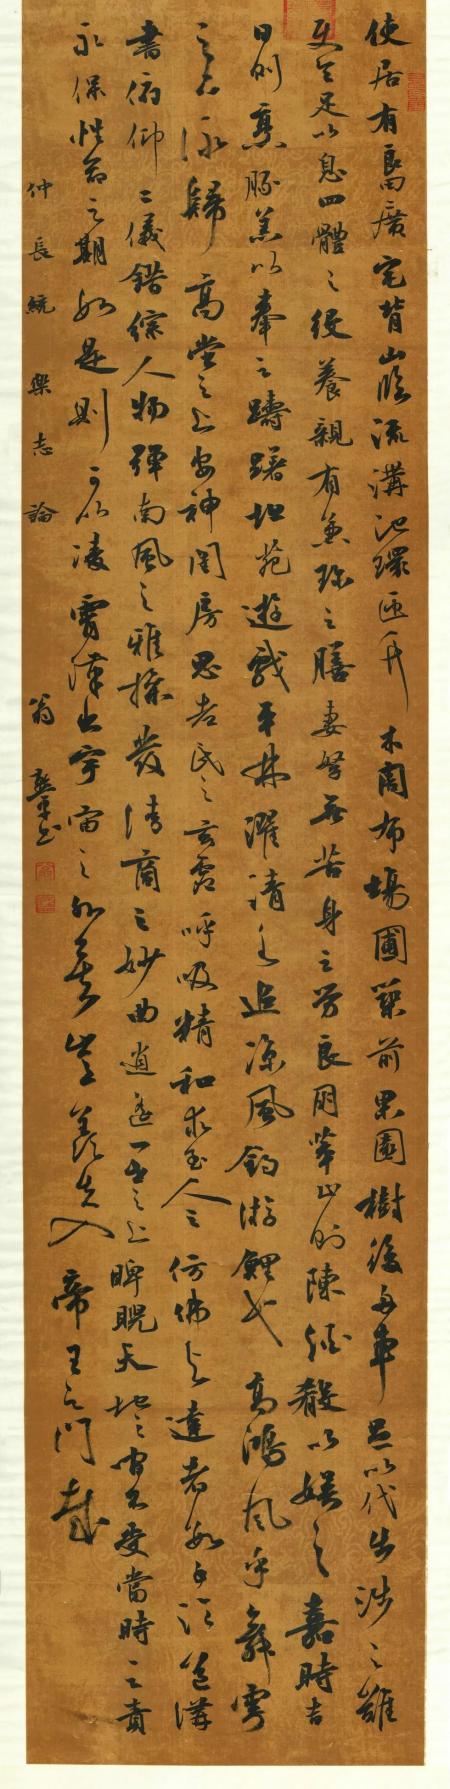 使居有良田廣宅背山臨流溝池環匝竹木周布場圃築前果園樹後舟車足以代步涉之難
使令足以息四體之役養親有兼珍之膳妻孥無苦身之勞良朋萃止則陳酒殽以娛之嘉時吉
日則烹豚羔以奉之躊躇畦苑遊戲平林濯清水追涼風釣游鯉弋高鴻風乎舞雩
之下詠歸高堂之上安神閨房思老氏之玄虛呼吸精和求至人之仿佛與達者數子論道講
書俯仰二儀錯綜人物彈南風之雅操發清商之妙曲逍遙一世之上睥睨天地之間不受當時之責
永保性命之期如是則可以凌霄漢出宇宙之外矣豈羨夫入帝王之門哉
仲長統 樂志論 翁 書